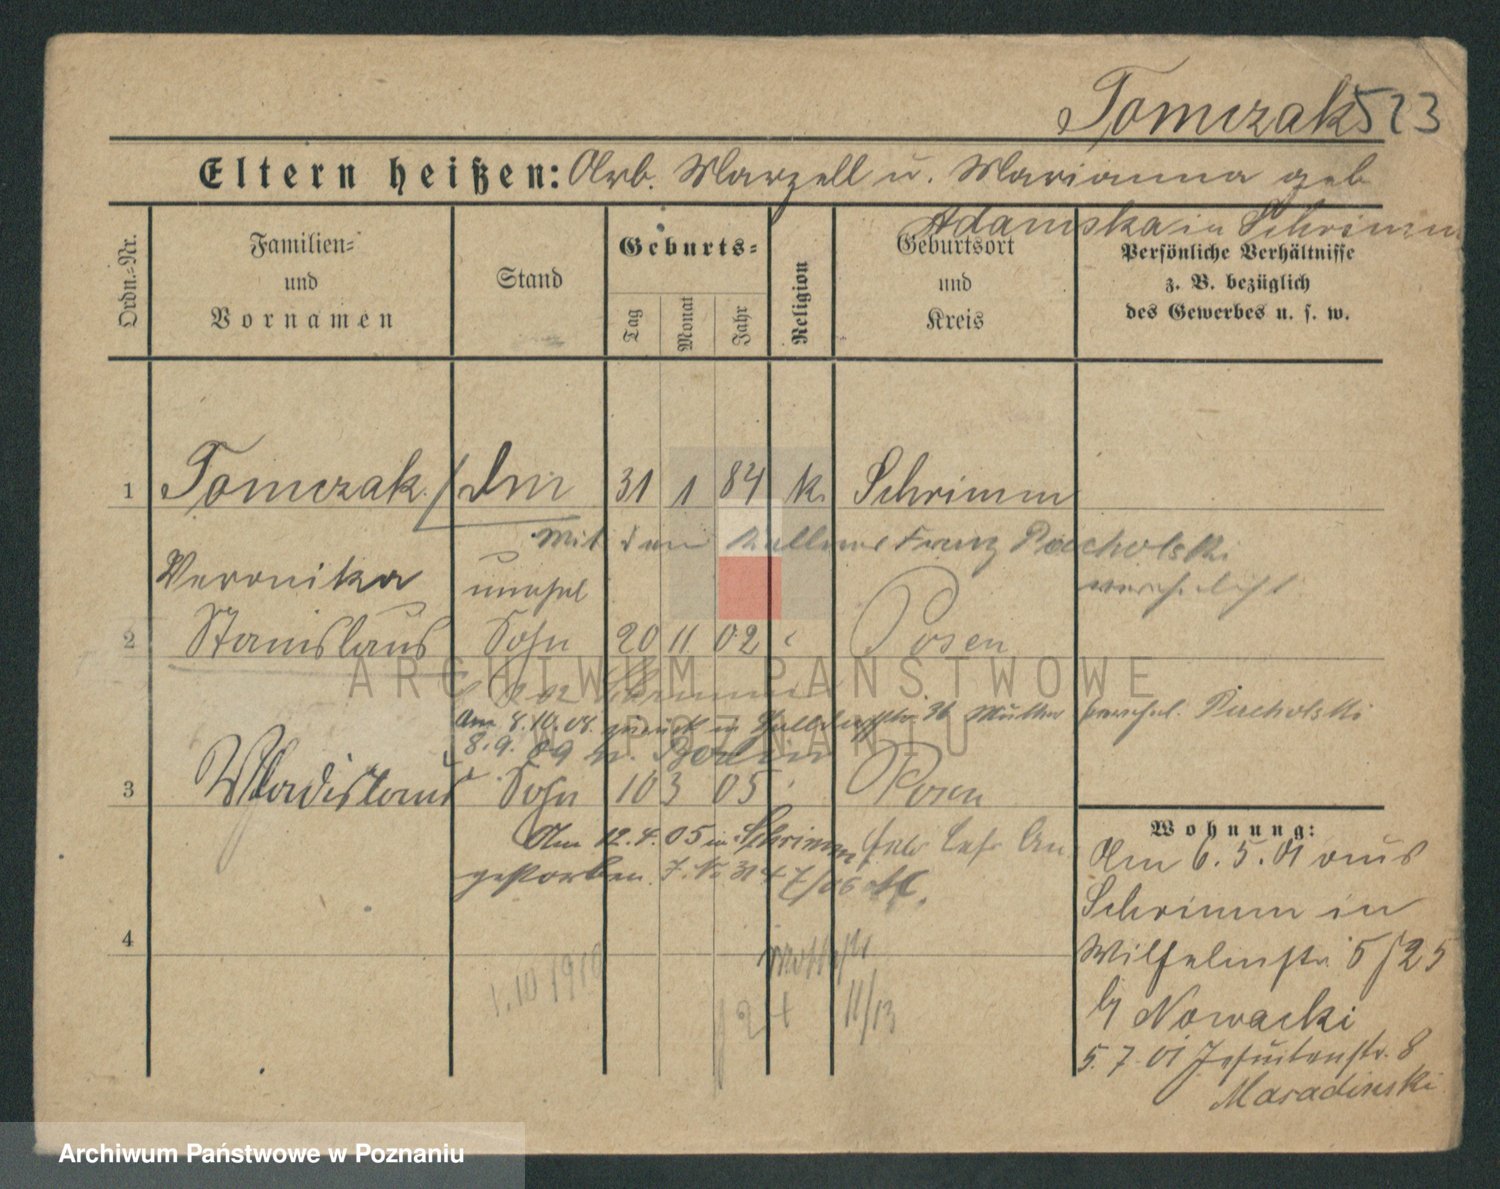 Tomczak 523
Eltern heißen: Arb. Marzell u. Marianna geb
Adamska in Schrimm
Ordn.-Nr.
Familien- und Vornamen
Stand
Geburts-
Tag Monat Jahr
Religion
Geburtsort und Kreis
Persönliche Verhältnisse
z. B. bezüglich
des Gewerbes u. s. w.
1 Tomczak 31 1 84 k. Schrimm
Mit dem Kellner Franz
verehelicht
Veronika unehel
2 Stanislaus Sohn 20 11 02 Posen
Am 8.10.08. zurück in Mutter verehel.
8.9.09 n. Berlin
3 Wladislaus Sohn 10 3 05 Posen
Am 12.4.05 in Schrimm
gestorben.
4
1.10 1910
11/13
Wohnung:
Am 6.5.01 aus
Schrimm in
Wilhelmstr. 25
b/ Nowacki
5.7.01 Jesuitenstr. 8
Maradinski
ARCHIWUM PAŃSTWOWE
W POZNANIU
Archiwum Państwowe w Poznaniu